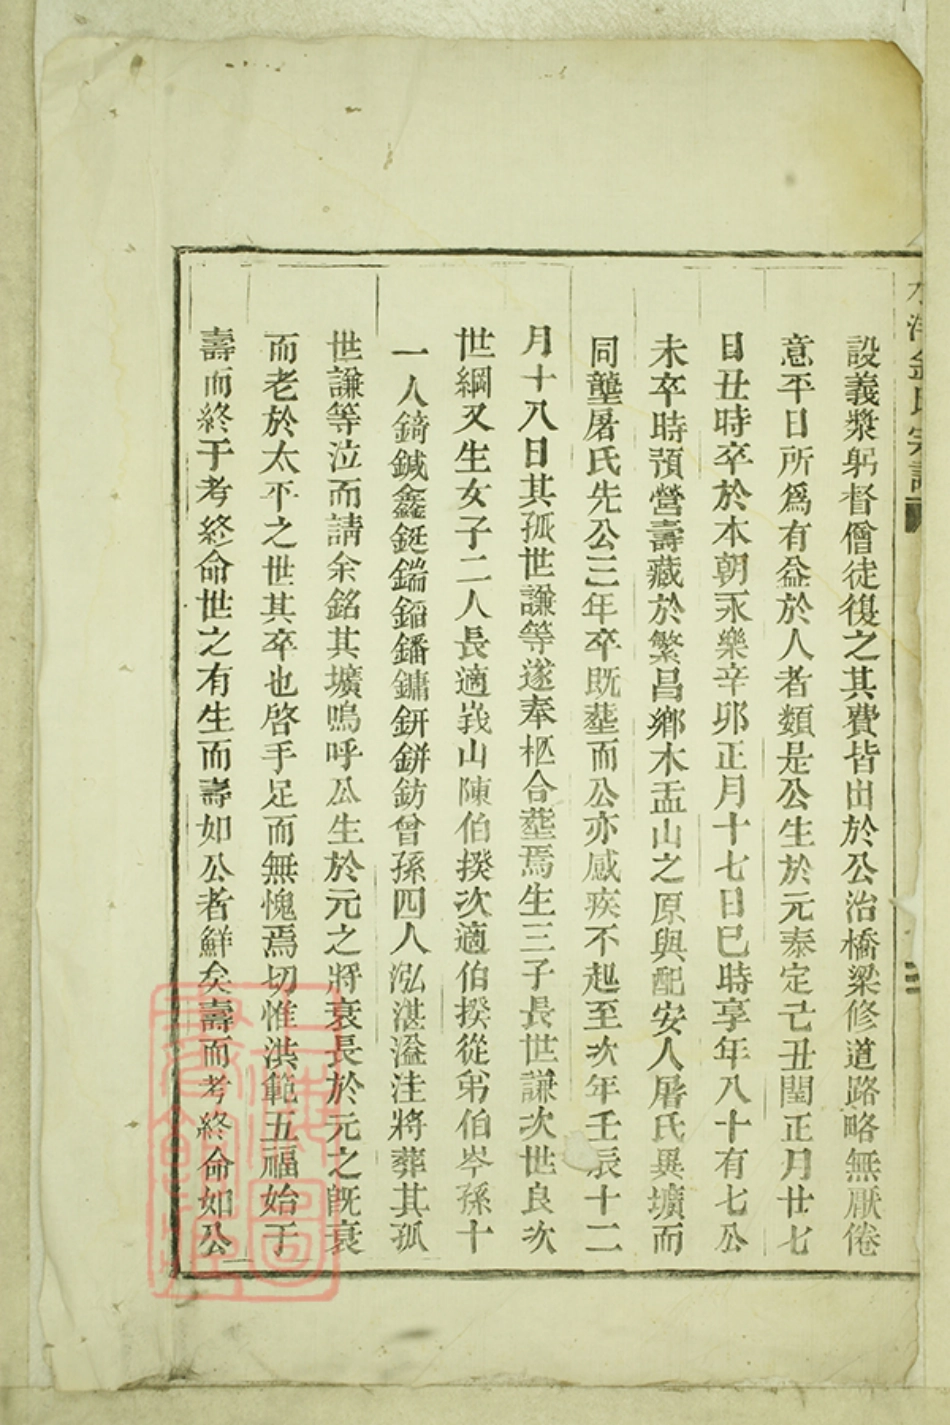 設義漿躬督僧徒復之其費皆出於公治橋梁修道路略無厭倦
意平日所爲有益於人者類是公生於元泰定己丑閏正月廿七
日丑時卒於本朝永樂辛卯正月十七日巳時享年八十有七公
未卒時預營壽藏於繁昌鄉木盂山之原與配安人屠氏異壙而
同壟屠氏先公三年卒既塟而公亦感疾不起至次年壬辰十二
月十八日其孤世謙等遂奉柩合塟焉生三子長世謙次世良次
世綱又生女子二人長適峩山陳伯揆次適伯揆從弟伯岑孫十
一人錡鍼鑫鋌鍴鍿鐇鏞鈃鉼鈁曾孫四人泓湛溢注將葬其孤
世謙等泣而請余銘其壙嗚呼公生於元之將衰長於元之旣衰
而老於太平之世其卒也啓手足而無愧焉切惟洪範五福始于
壽而終于考終命世之有生而壽如公者鮮矣壽而考終命如公